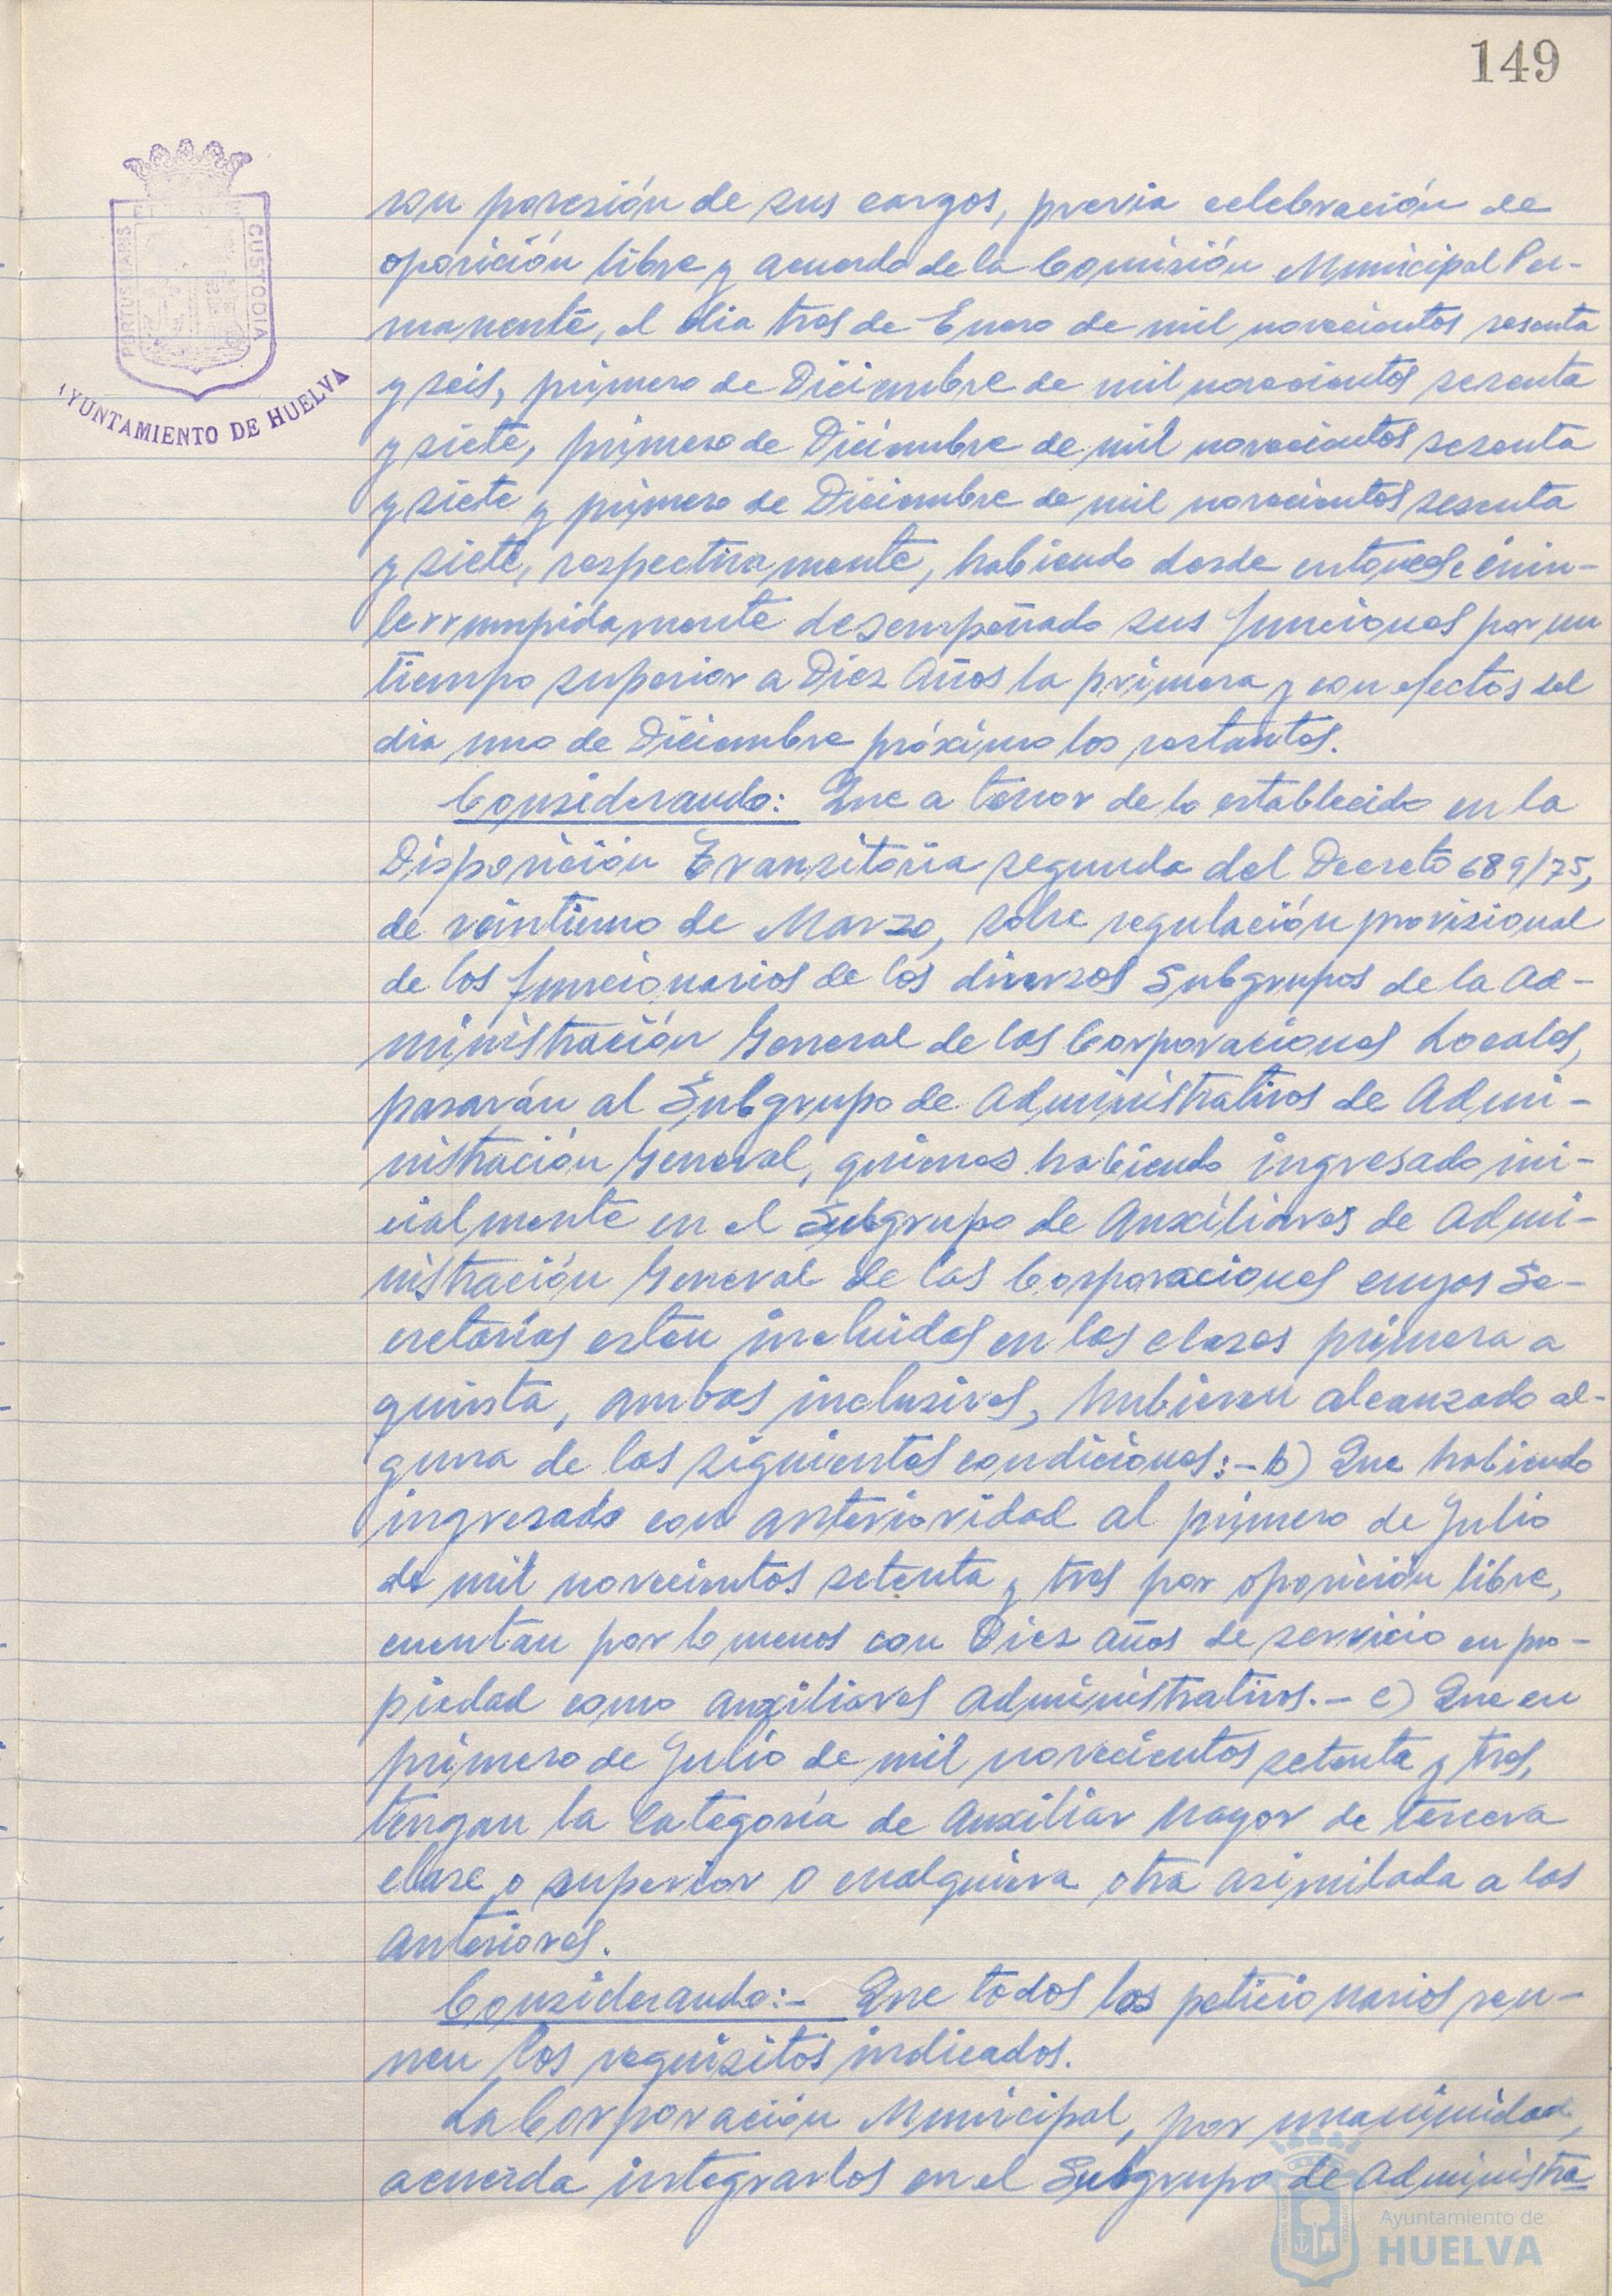 149
PORTUS MARIS
CUSTODIA
AYUNTAMIENTO DE HUELVA
ron posesión de sus cargos, previa celebración de
oposición libre y acuerdo de la Comisión Municipal Per-
manente, el dia tres de Enero de mil novecientos sesenta
y seis, primero de Diciembre de mil novecientos sesenta
y siete, primero de Diciembre de mil novecientos sesenta
y siete y primero de Diciembre de mil novecientos sesenta
y siete, respectivamente, habiendo desde entonces e inin-
terrumpidamente desempeñado sus funciones por un
tiempo superior a Diez Años la primera y con efectos del
dia uno de Diciembre próximo los restantes.
Considerando: Que a tenor de lo establecido en la
Disposición Transitoria segunda del Decreto 689/75,
de veintiuno de Marzo, sobre regulación provisional
de los funcionarios de los diversos Subgrupos de la Ad-
ministración General de las Corporaciones Locales,
pasarán al Subgrupo de Administrativos de Admi-
nistración General, quienes habiendo ingresado ini-
cialmente en el Subgrupo de Auxiliares de Admi-
nistración General de las Corporaciones cuyas Se-
cretarías estén incluidas en las clases primera a
quinta, ambas inclusives, hubieren alcanzado al-
guna de las siguientes condiciones:- b) Que habiendo
ingresado con anterioridad al primero de Julio
de mil novecientos setenta y tres por oposición libre,
cuentan por lo menos con Diez años de servicio en pro-
piedad como Auxiliares Administrativos.- c) Que en
primero de Julio de mil novecientos setenta y tres,
tengan la Categoría de Auxiliar Mayor de tercera
clase o superior o cualquiera otra asimilada a las
anteriores.
Considerando:- Que todos los peticionarios reu-
nen los requisitos indicados.
La Corporación Municipal, por unanimidad,
acuerda integrarlos en el Subgrupo de Administra-
Ayuntamiento de
HUELVA